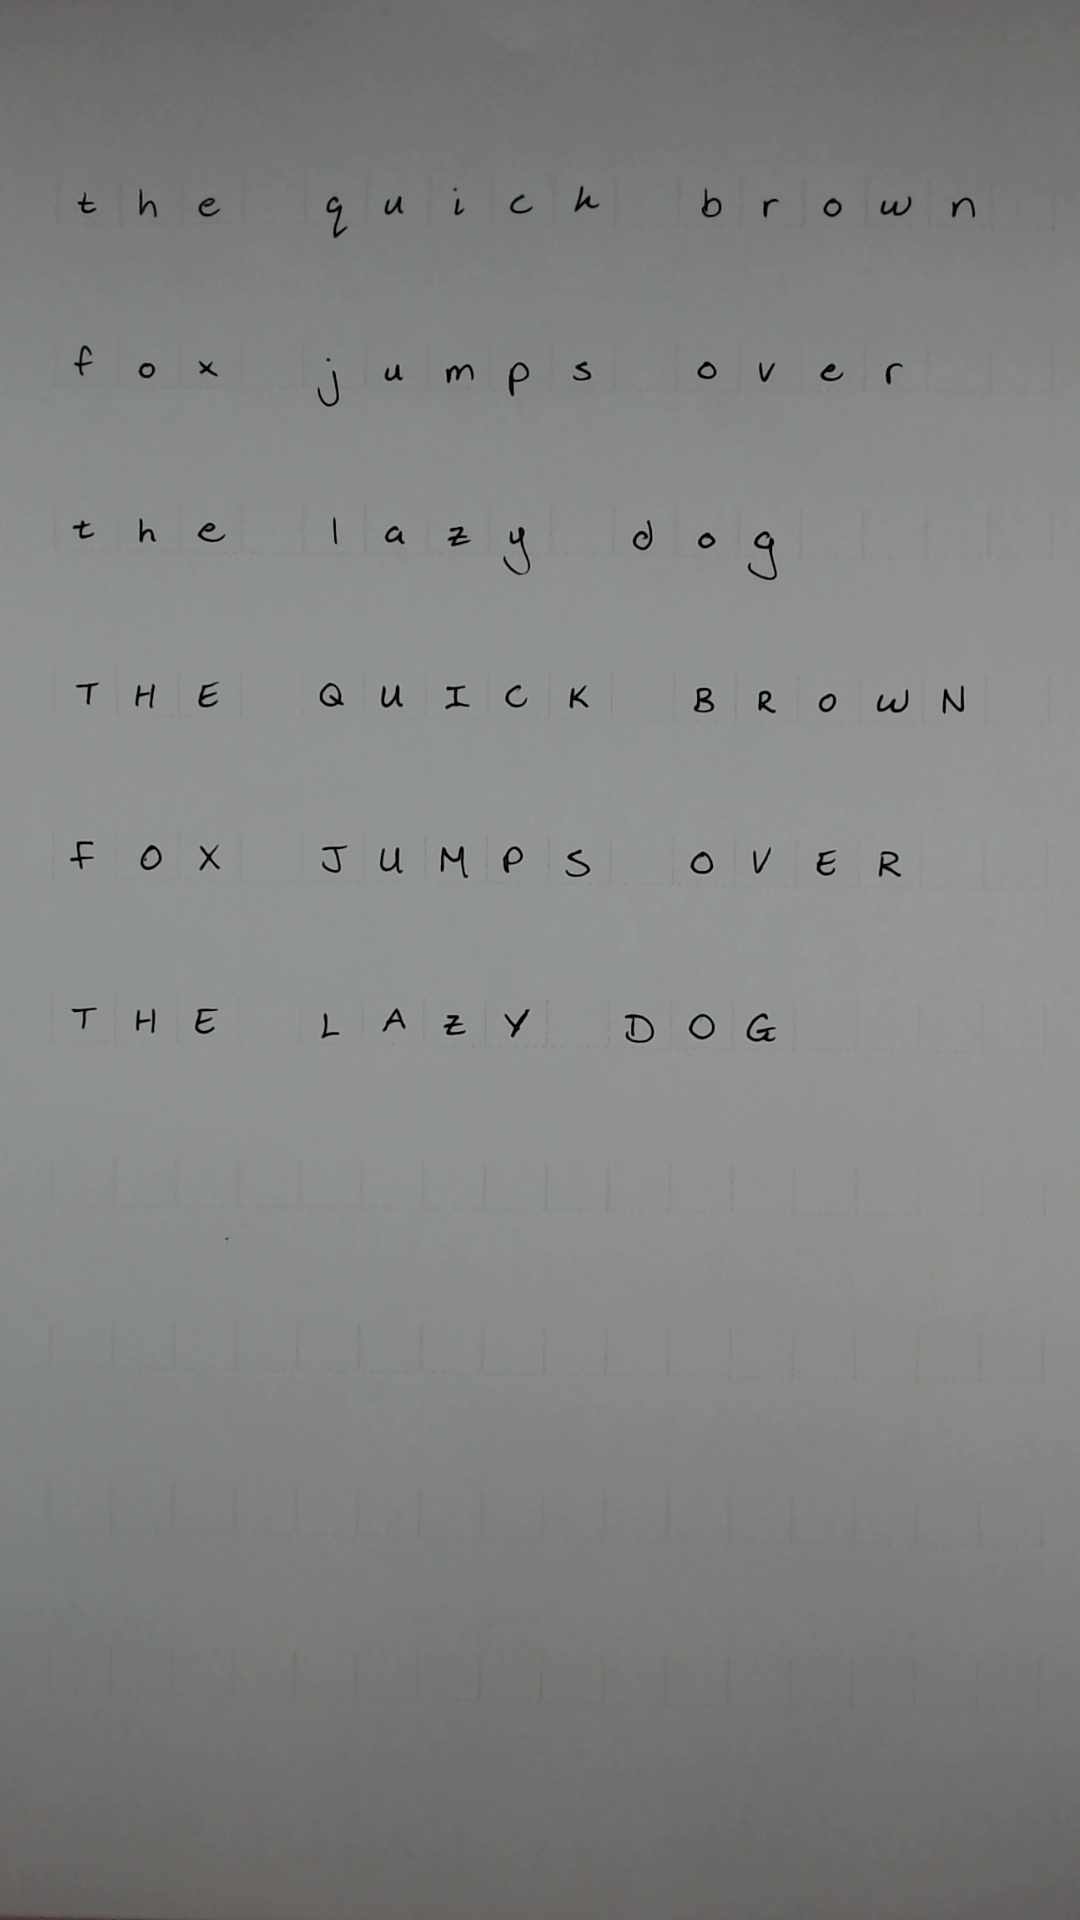 the quick brown
fox jumps over
the lazy dog
THE QUICK BROWN
FOX JUMPS OVER
THE LAZY DOG